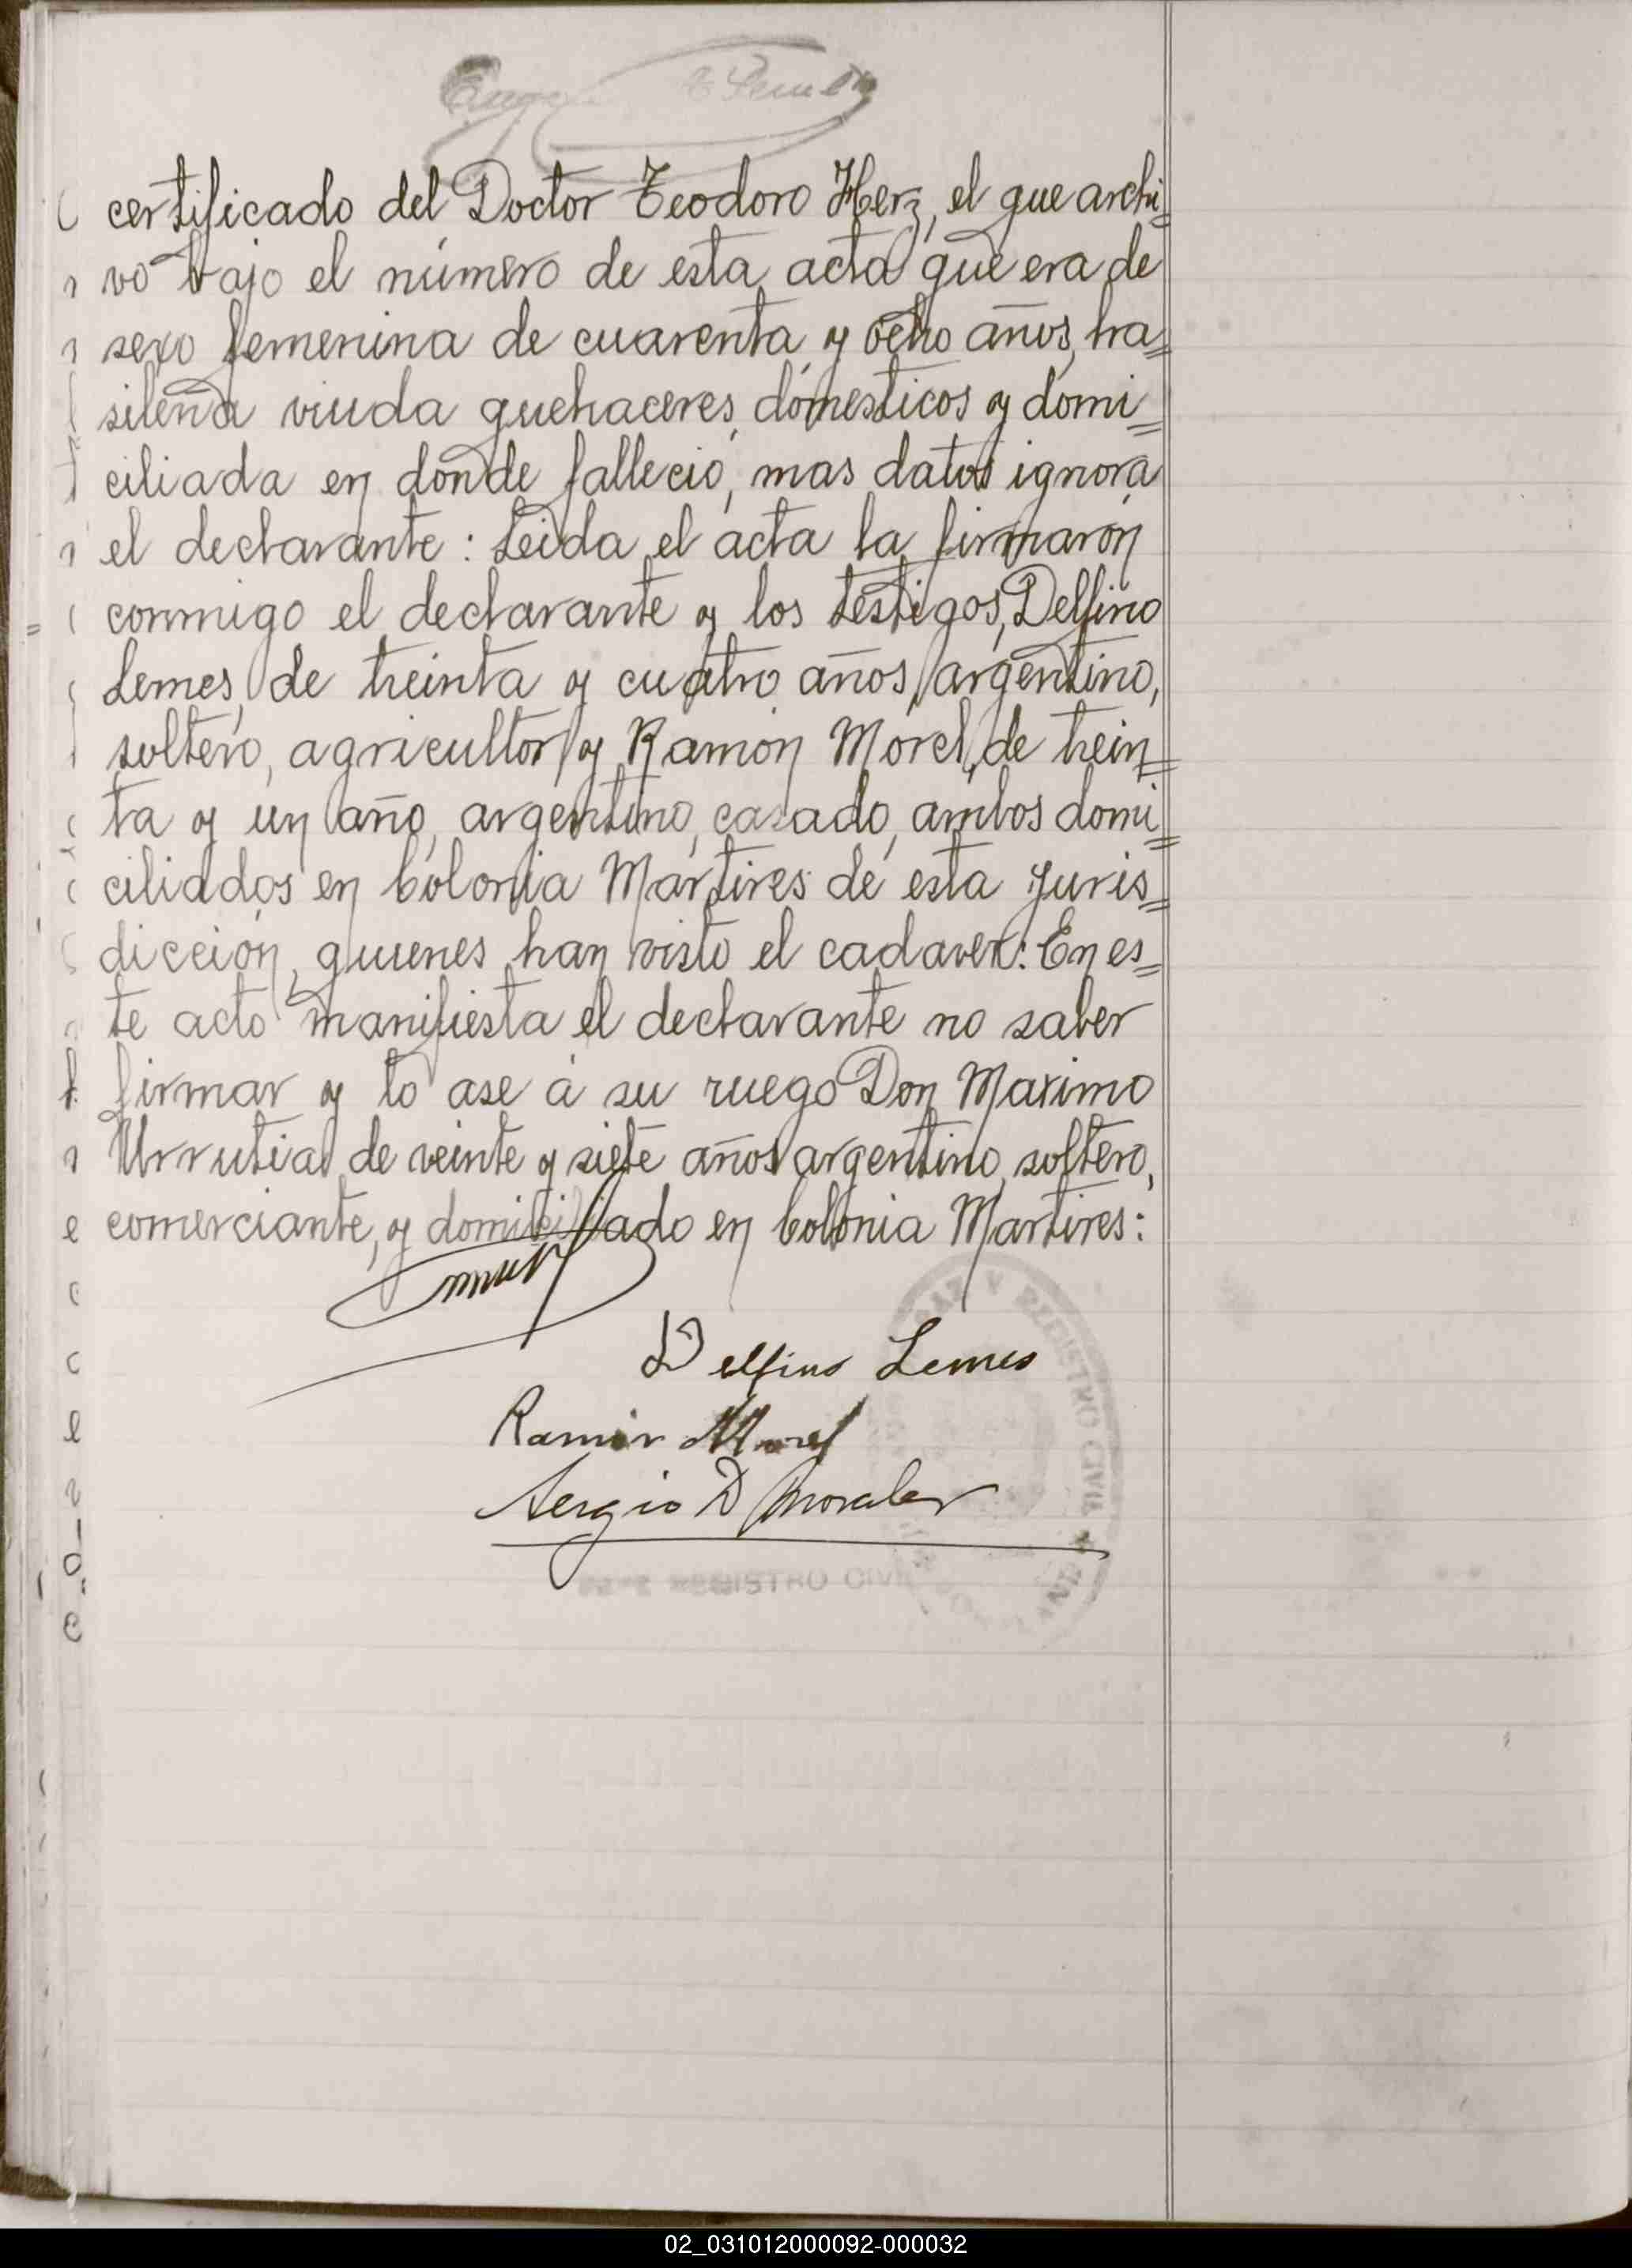 certificado del Doctor Teodoro Herz, el que archi=
vo bajo el número de esta acta que era de
sexo femenina de cuarenta y ocho años, bra=
sileña viuda quehaceres domesticos y domi=
ciliada en donde fallecio, mas datos ignora
el declarante: Leida el acta la firmaron
conmigo el declarante y los testigos, Delfino
Lemes, de treinta y cuatro años, argentino,
soltero, agricultor y Ramon Morel, de trein=
ta y un año, argentino, casado, ambos domi=
ciliados en Colonia Martires de esta juris=
dicción, quienes han visto el cadaver: En es=
te acto manifiesta el declarante no saber
firmar y lo ase á su ruego Don Maximo
Urrutia, de veinte y siete años argentino, soltero,
comerciante, y domiciliado en Colonia Martires:
Delfino Lemes
Ramón Morel
Sergio D Morales
Y REGISTRO CIVIL
REGISTRO CIVIL
02_031012000092-000032